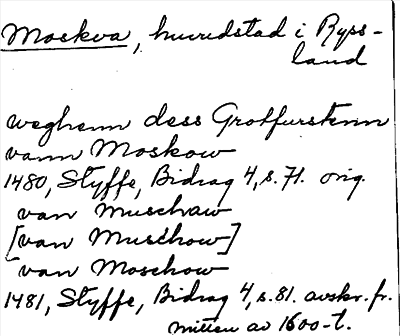 Moskva, huvudstad i Ryss-
land
weghenn dess Grotfurstenn
vann Moskow
1480, Styffe, Bidrag 4, s. 71. orig.
van Muschaw
[van Muschow]
van Moschow
1481, Styffe, Bidrag 4, s. 81. avskr. fr.
mitten av 1600-t.